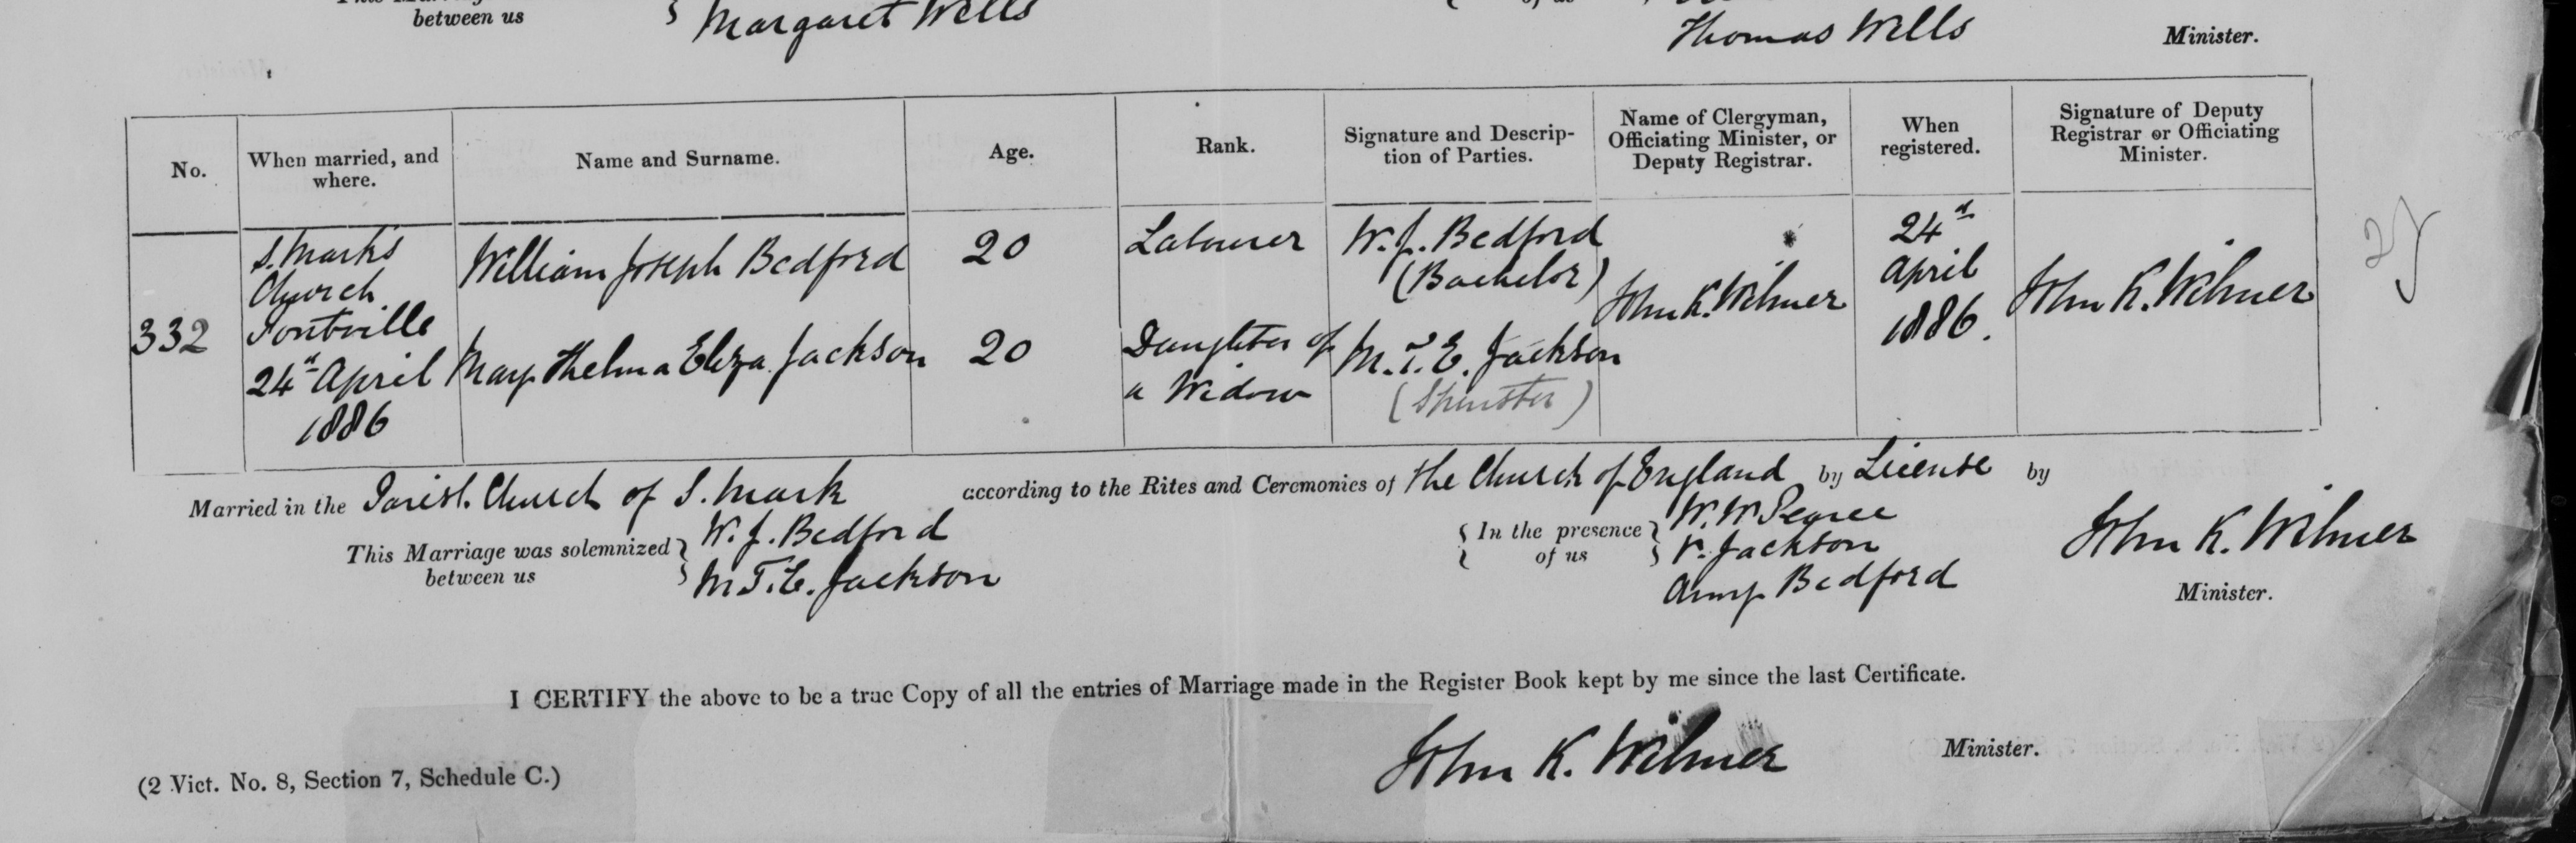 between us
Margaret Wells
Thomas Wells
Minister.
No.
When married, and
where.
Name and Surname.
Age.
Rank.
Signature and Descrip-
tion of Parties.
Name of Clergyman,
Officiating Minister, or
Deputy Registrar.
When
registered.
Signature of Deputy
Registrar or Officiating
Minister.
332
S. Mark's
Church
Pontville
24th April
1886
William Joseph Bedford
20
Labourer
W. J. Bedford
(Bachelor)
John K. Wilmer
24th
April
1886.
John K. Wilmer
May Thelma Eliza Jackson
20
Daughter of
a Widow
M. T. E. Jackson
(Spinster)
Married in the Parish Church of S. Mark according to the Rites and Ceremonies of the Church of England by License by
This Marriage was solemnized
between us
W. J. Bedford
M. T. E. Jackson
In the presence
of us
W. W. Pearce
V. Jackson
Amy Bedford
John K. Wilmer
Minister.
I CERTIFY the above to be a true Copy of all the entries of Marriage made in the Register Book kept by me since the last Certificate.
John K. Wilmer
Minister.
(2 Vict. No. 8, Section 7, Schedule C.)